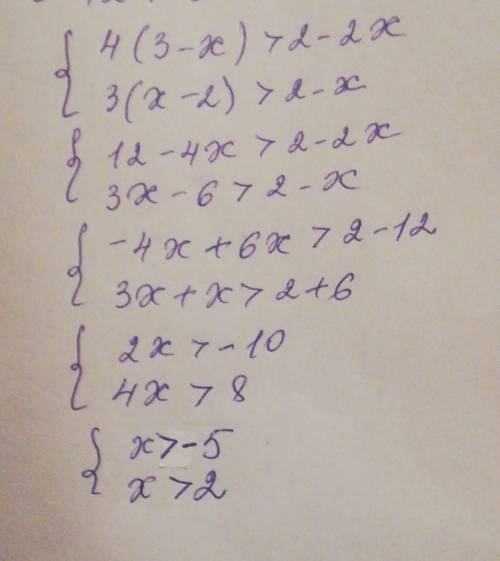 4(3-x)>2-2x
3(x-2)>2-x
12-4x>2-2x
3x-6>2-x
-4x+6x>2-12
3x+x>2+6
2x>-10
4x>8
x>-5
x>2